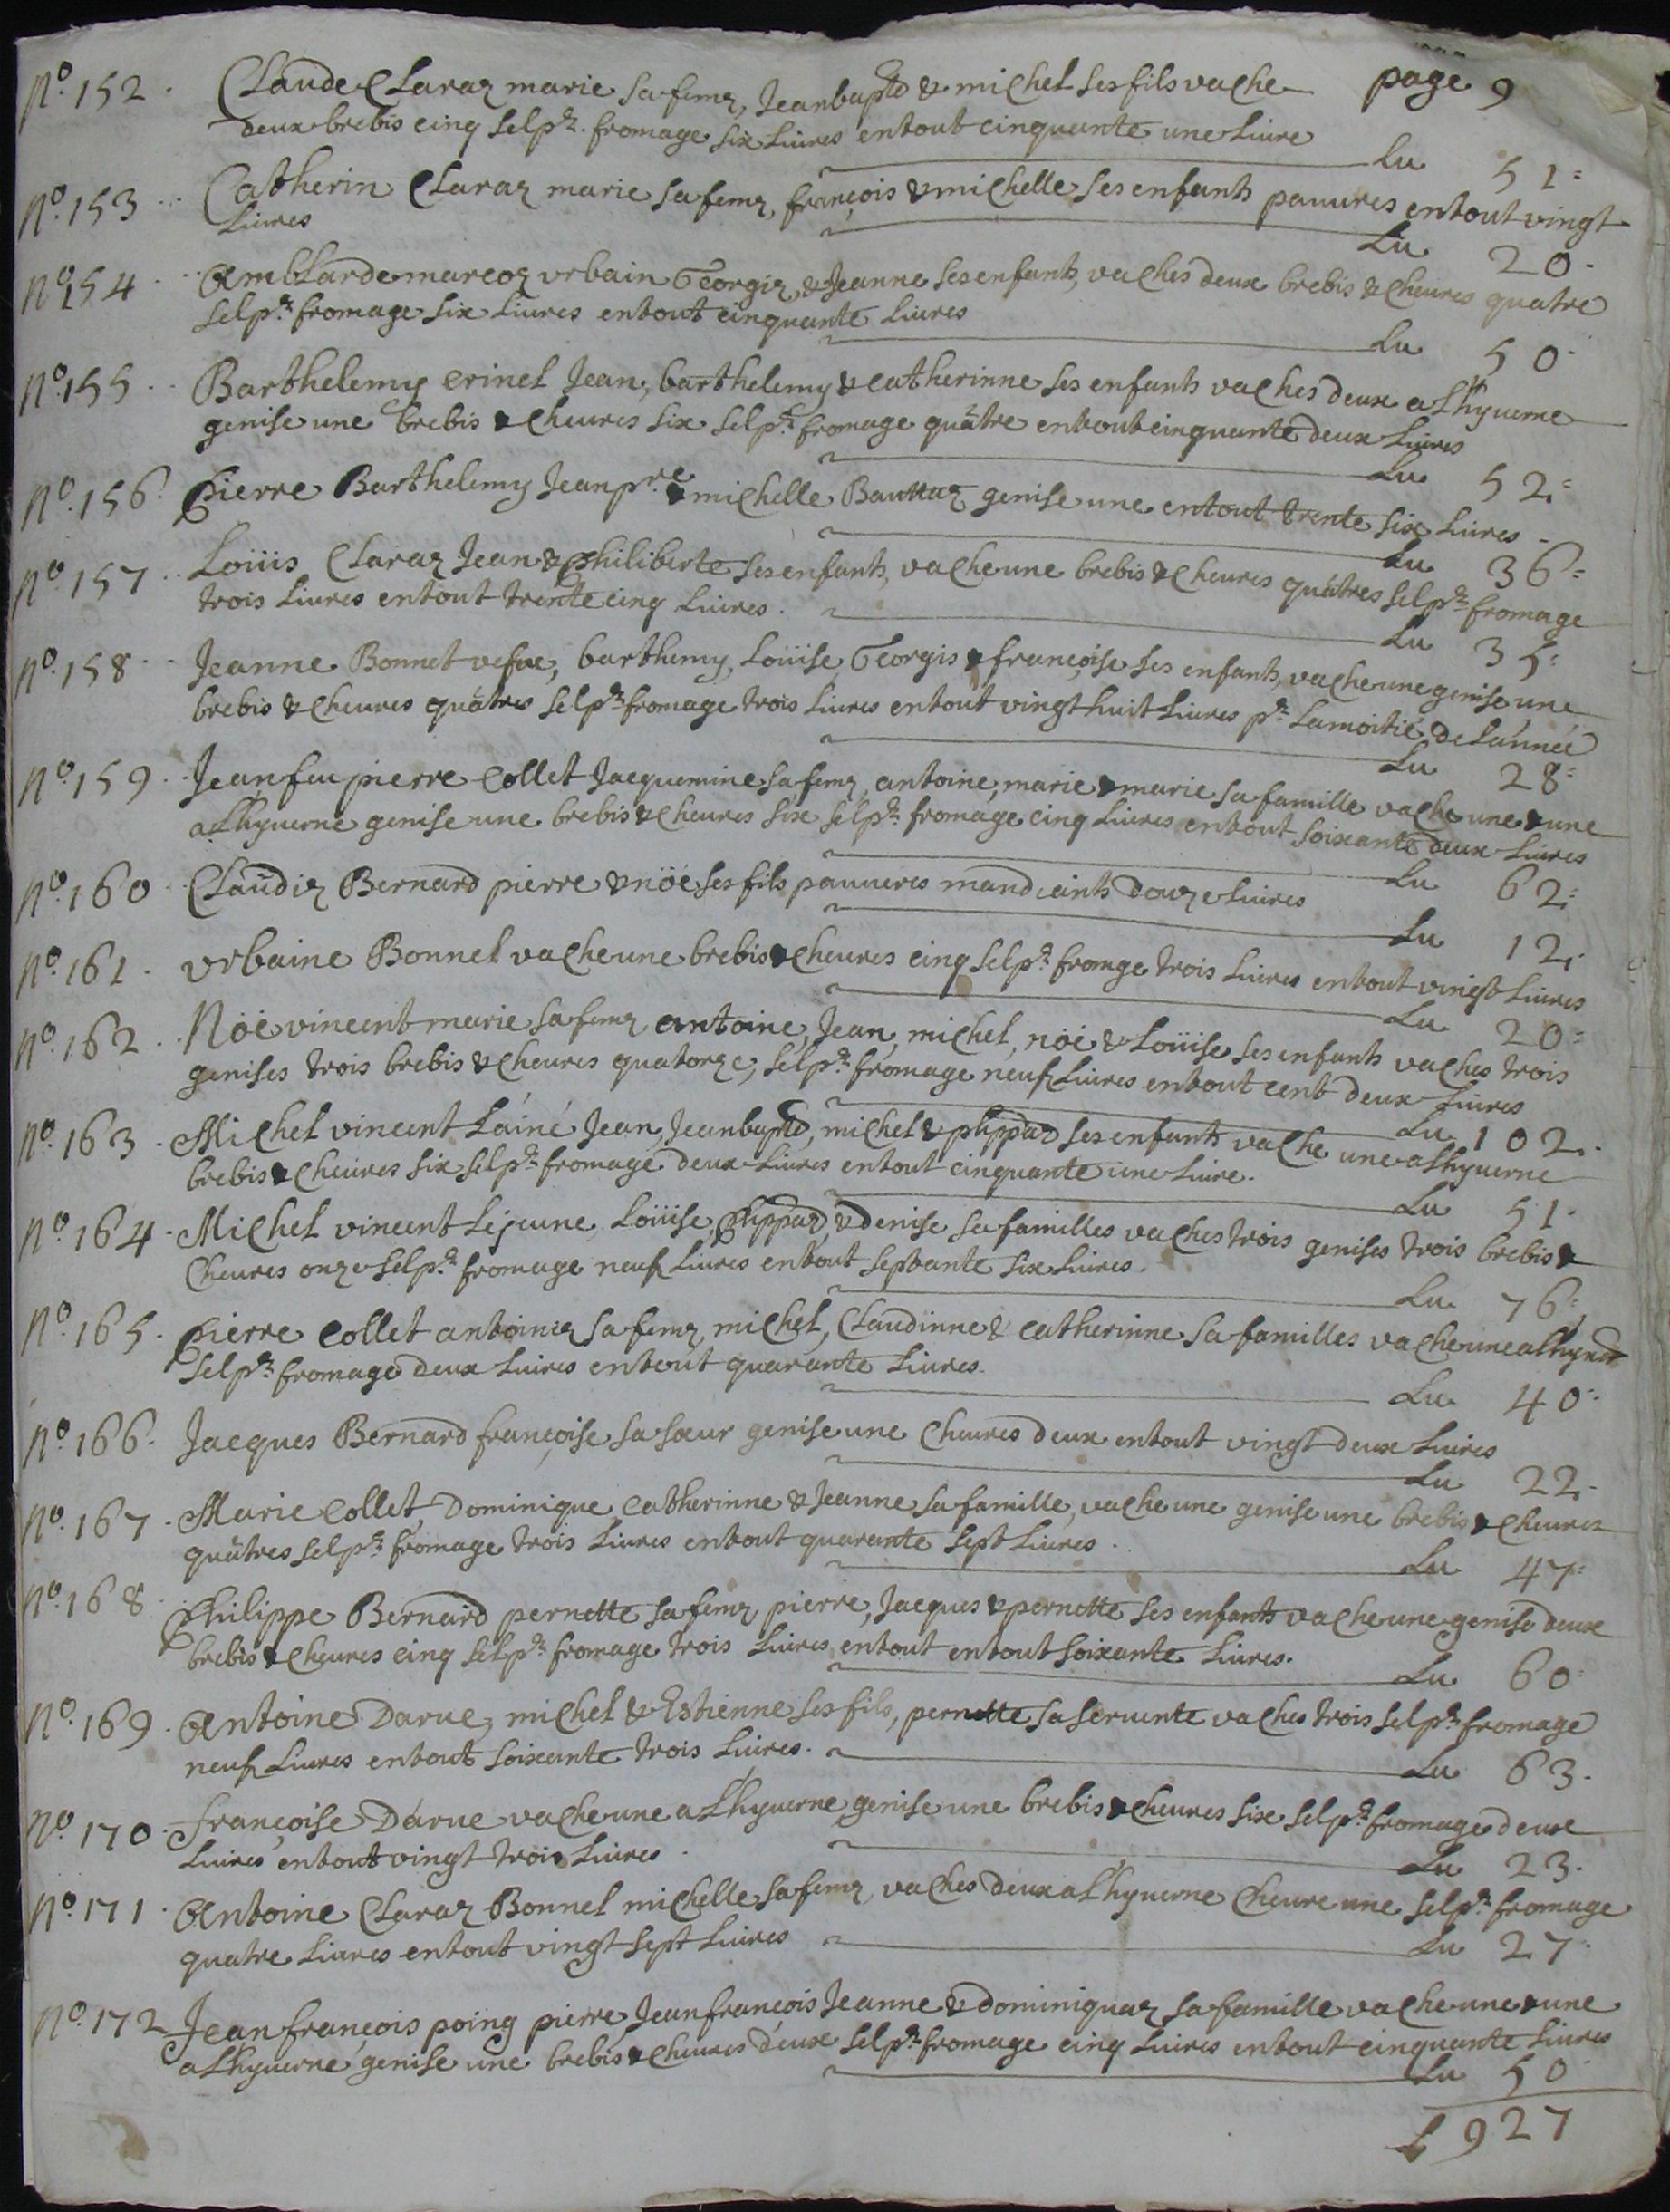 page 9
No. 152. Claude Claraz marie sa femz, Jeanbaptd & michel ses fils vache
deux brebis cinq selpr. fromage six Livres entout cinquante une Livre
Lu 51=
No. 153 .. Catherin Claraz marie sa femz, françois & michelle ses enfants pauures entout vingt
Livres
Lu 20.
No 154 .. Amblarde marcoz vrbain Georgiz & Jeanne ses enfants, vaches deux brebis & cheures quatre
selpr. fromage six Liures entout cinquante Liures
Lu 50.
No. 155 .. Barthelemy crinel Jean, barthelemy & catherinne ses enfants vaches deux a Lhyuerne
genise une brebis & cheures six selpr. fromage quätre entout cinquante deux Liures
Lu 52=
No. 156. Pierre Barthelemy Jeanpre. & michelle Bauttaz genise une entout trente six Liures -
Lu 36=
No. 157 .. Loüis Claraz Jean & Philiberte ses enfants, vache une brebis & cheures quätres selpr. fromage
trois Liures entout trente cinq Liures.
Lu 35=
No. 158 .. Jeanne Bonnet vefue, barthemy, Loüise, Georgis & françoise ses enfants, vache une genise une
brebis & cheures quätres selpr. fromage trois Liures entout vingt huit Liures pr. Lamoitié de Lánnéé
Lu 28=
No. 159. Jean feu pierre Collet Jacquemine sa femz, antoine, marie & marie sa famille vache une & une
a Lhyuerne genise une brebis & cheures six selpr. fromage cinq Liures entout soixante deux Liures
Lu 62=
No. 160 .. Claüdiz Bernard pierre & nöé ses fils pauueres mandiants douze Liures
Lu 12.
No. 161. vrbaine Bonnel vache une brebis & cheures cinq selpr. fromge trois Liures entout vingt Liures
Lu 20=
No. 162 .. Nöé vincent marie sa femz antoine, Jean, michel, nöé & Loüise ses enfants vaches trois
genises trois brebis & cheures quatorze, selpr. fromage neuf Liures entout cent deux Liures
Lu 102.
No. 163. Michel vincent Láiné Jean, Jeanbaptd, michel & phppaz ses enfants vache une a Lhyuerne
brebis & cheures six selpr. fromage deux Liures entout cinquante une Liure.
Lu 51.
No. 164. Michel vincent Lejeune, Loüise, Phppaz, & denise sa familles vaches trois genises trois brebis &
cheures onze selpr. fromage neuf Liures entout septante six Liures.
Lu 76=
No. 165. Pierre Collet antoiniz sa femz, michel, Claudinne & catherinne sa familles vache une a Lhyuer
selpr. fromage deux Liures entout quarante Liures.
Lu 40=
No. 166. Jacques Bernard françoise sa sœur genise une Cheures deux entout vingt deux Liures
Lu 22.
No. 167. Marie Collet, Dominique, catherinne & Jeanne sa famille, vache une genise une brebis & cheures
quätres selpr. fromage trois Liures entout quarante sept Liures.
Lu 47=
No. 168. Philippe Bernard pernette sa femz pierre, Jacques & pernette ses enfants vache une genise deux
brebis & cheures cinq selpr. fromage trois Liures entout entout soixante Liures.
Lu 60=
No. 169. Antoine Darue, michel & Estienne ses fils, pernette sa seruente vaches trois selpr. fromage
neuf Liures entout soixante trois Liures.
Lu 63.
No. 170. françoise Darue vache une a Lhyuerne, genise une brebis & cheures six selpr. fromage deux
Liures entout vingt trois Liures.
Lu 23.
No. 171. Antoine Claraz Bonnel michelle sa femz, vaches deux a Lhyuerne Cheure une selpr. fromage
quatre Liures entout vingt sept Liures
Lu 27.
No. 172 Jean françois poing pierre, Jeanfrançois Jeanne & dominiquaz sa famille vache une & une
a Lhyuerne genise une brebis & cheures deux selpr. fromage cinq Liures entout cinquante Liures
Lu 50
L 927